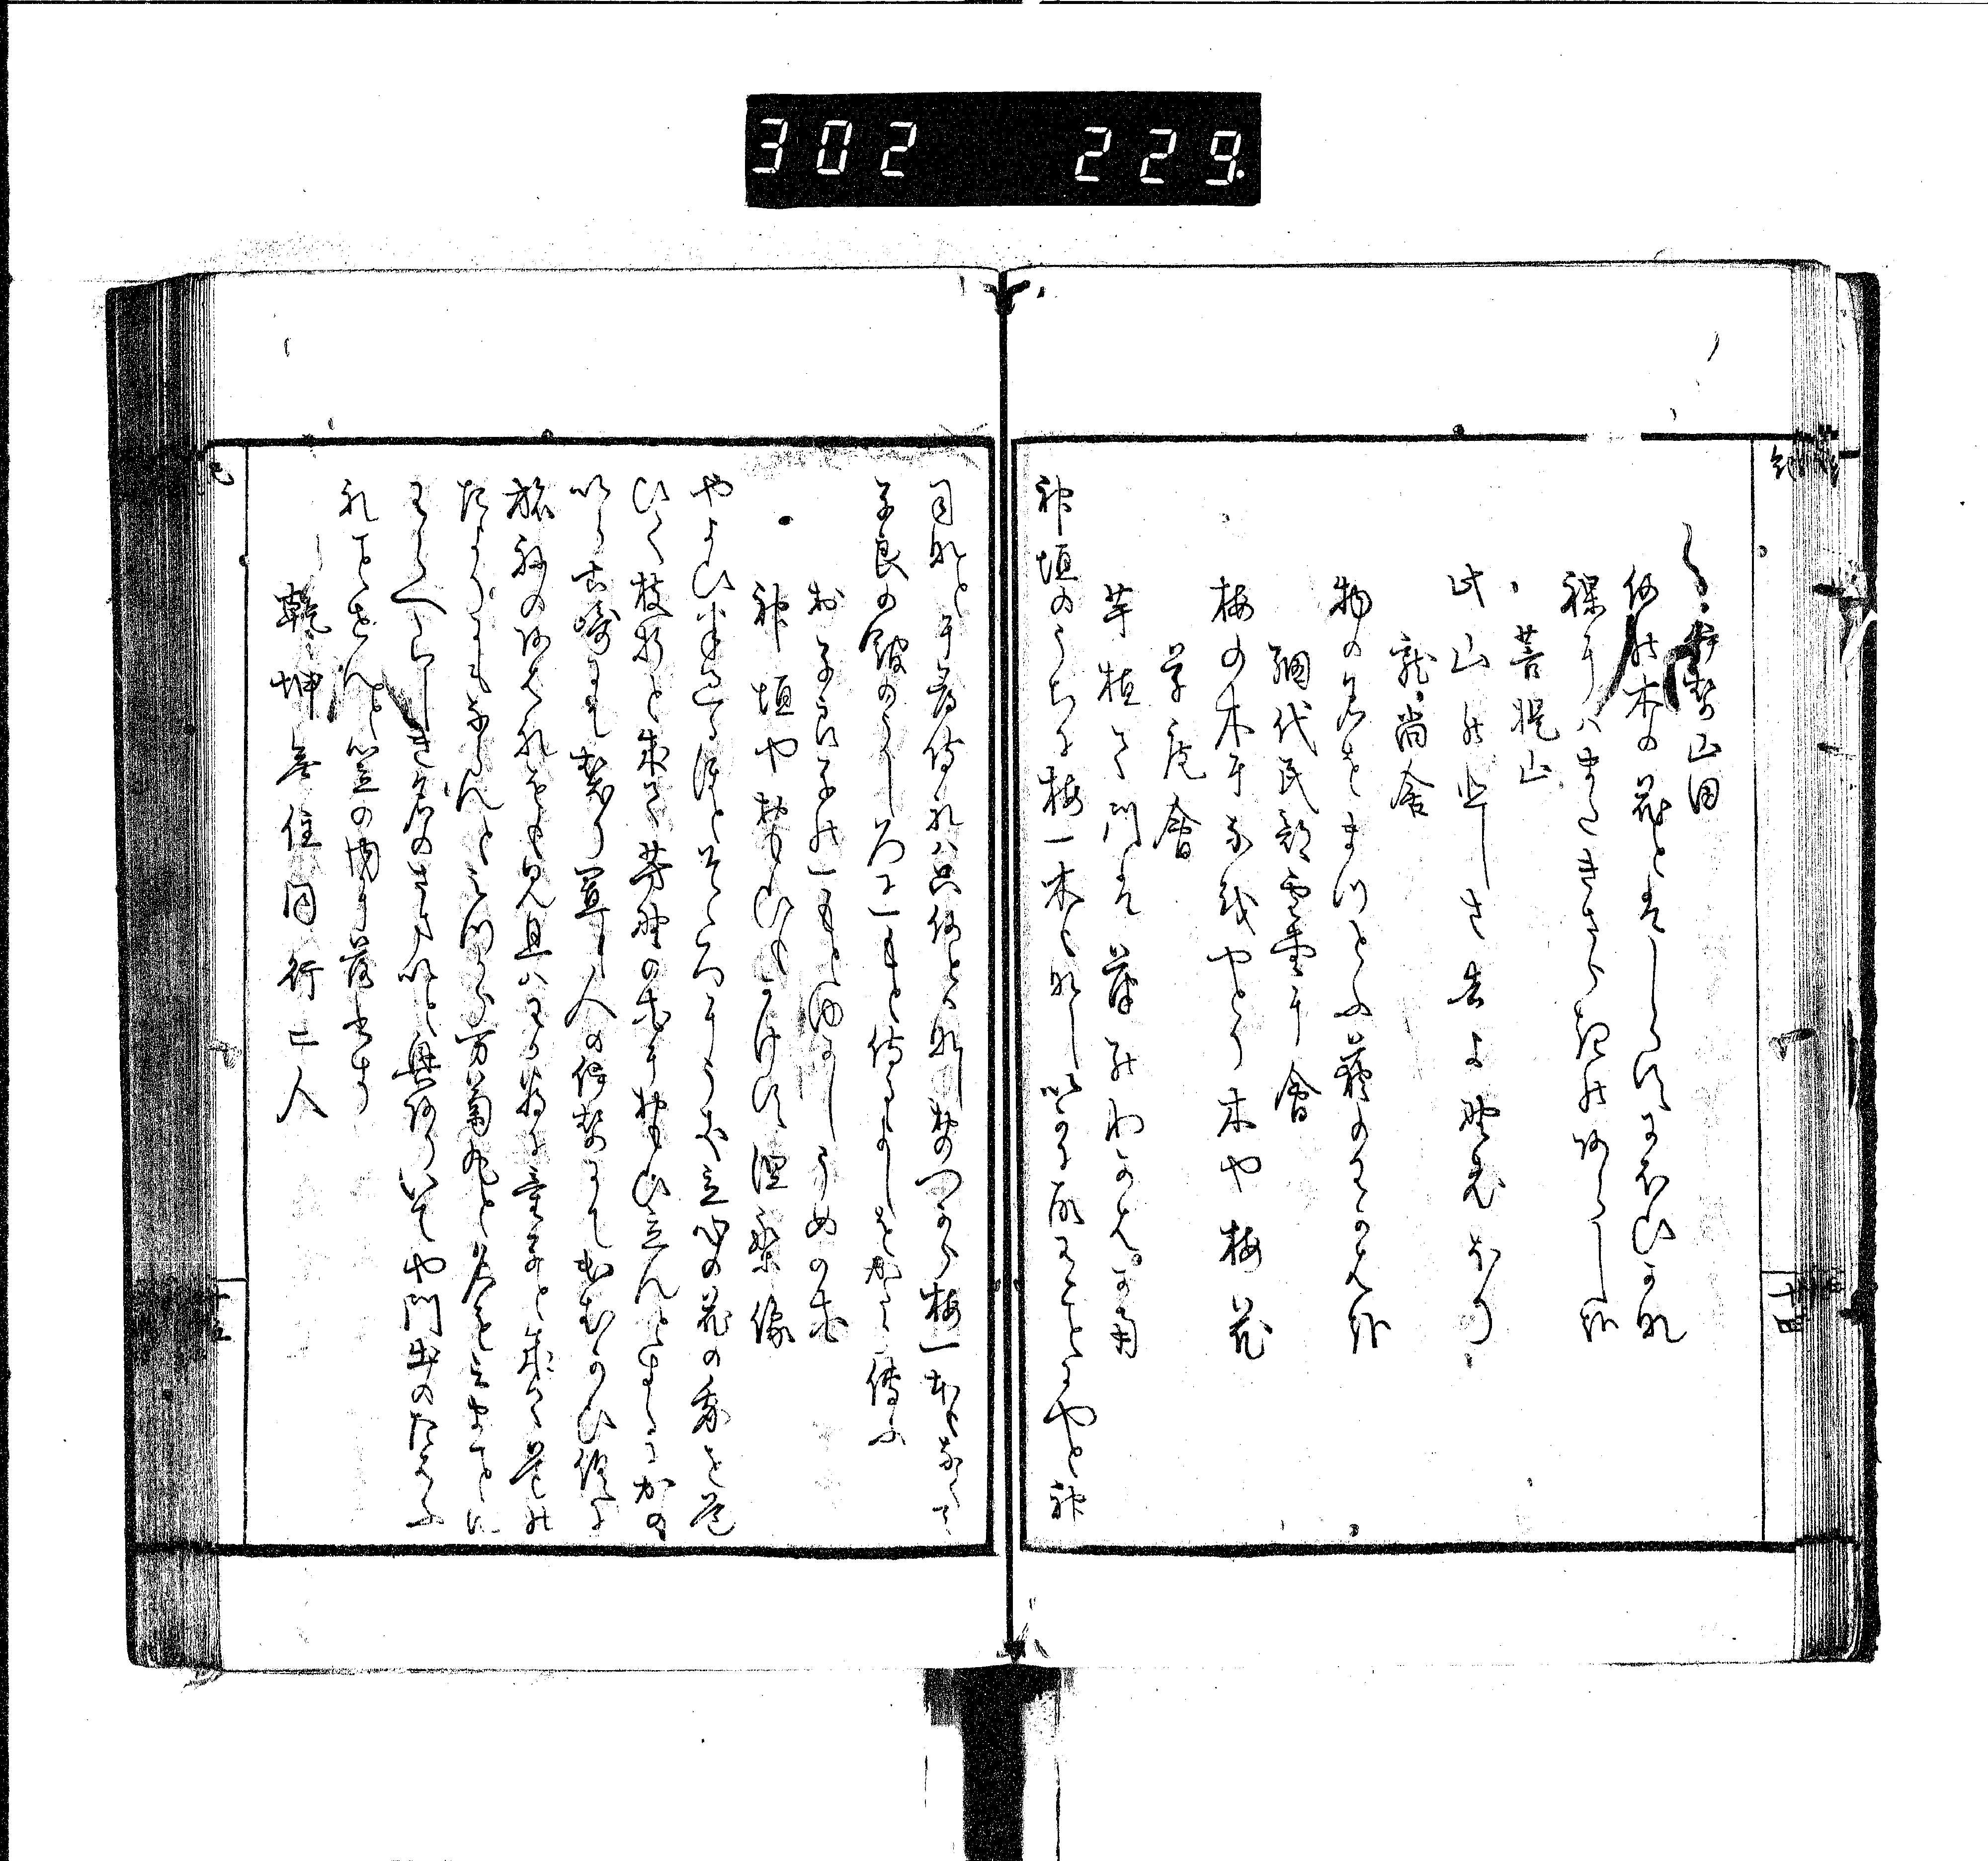 伊勢山田
何の木の花とはしらすにほひかな
裸にはまたきさらきのあらし哉
菩提山
此山のかなしさ告よ野老ほり
龍尚舎
物の名をまつとふ蘆のわかは哉
網代民部雪堂に會
梅の木に猶やとり木や梅花
草庵會
芋植て門は葎のわかはかな
神垣のうちに梅一木もなしいかに故有ことにやと神
司なとに尋侍れハ只何とはなしおのつから梅一本もなくて
子良の館のうしろに一もと侍るよしをかたり傳ふ
御子良子の一もとゆかしうめの花
神垣やおもひもかけす涅槃像
やよひ半過るほとそゝろにうき立心の花の我を道
ひく枝折と成て芳野の花におもひ立んとするにかの
いらこ崎にて契り置し人の伊勢にて出むかひ供に
旅ねのあはれをも見且ハわか為に童子と成て道の
たよりにもならんと自万菊丸と名を云まことに
わらへらしき名のさまいと興ありいてや門出のたはふ
れことせんと笠の内に落書す
乾坤無住同行二人
十四
十五
302 229